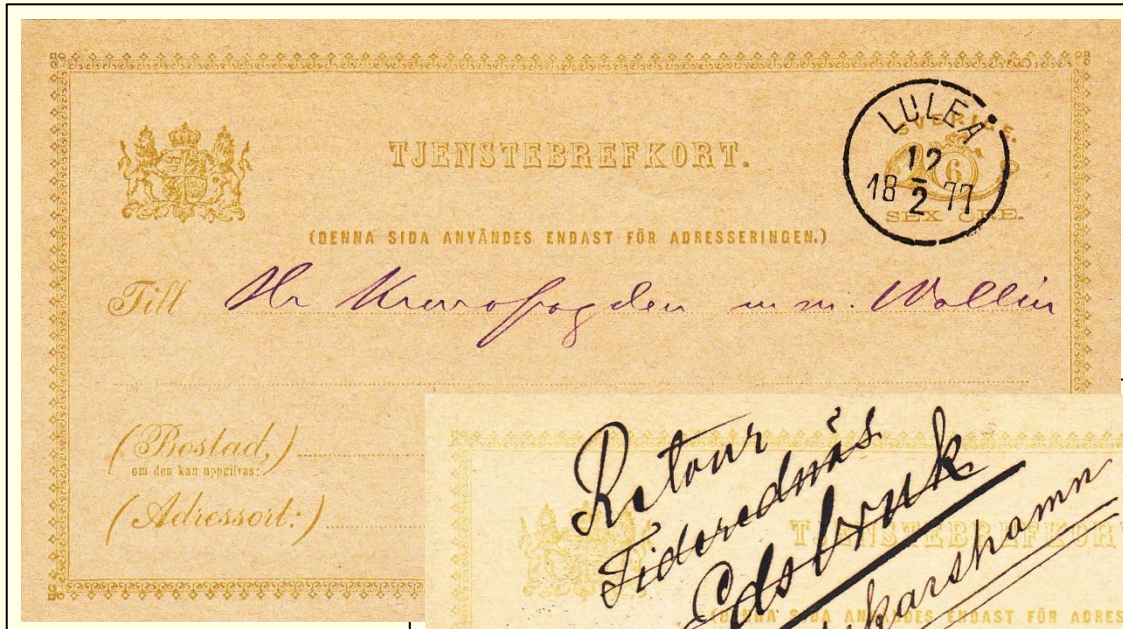 TJENSTEBREFKORT.
LULEÅ
12
18 2 77
SVERIGE.
6
SEX ÖRE.
(DENNA SIDA ANVÄNDES ENDAST FÖR ADRESSERINGEN.)
Till Hr Kronofogden m. m. Wallin
(Bostad,)
om den kan uppgifvas:
(Adressort:)
Retour
Edsbruk
skarshamn
TJENSTEBREFKOR
(DENNA SIDA ANVÄNDES ENDAST FÖR ADRES